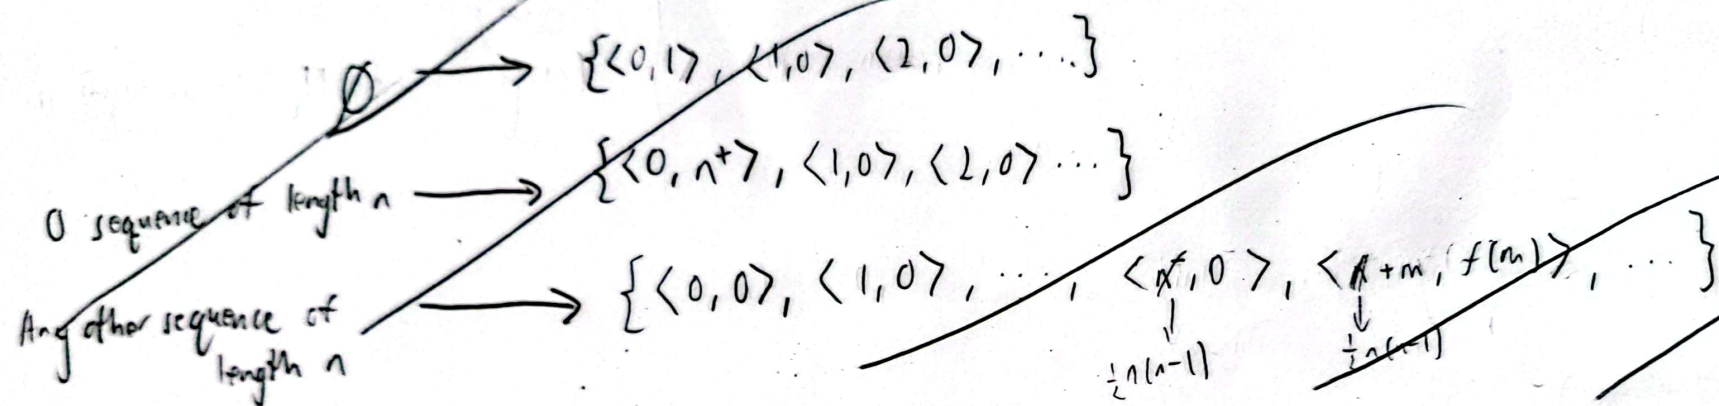 ∅ → {<0,1>, <1,0>, <2,0>, ....}
0 sequence of length n → {<0, n⁺>, <1,0>, <2,0> ...}
Any other sequence of length n → {<0,0>, <1,0>, ..., < ,0>, < +m, f(m)>, ...}
½n(n-1) ½n(n-1)